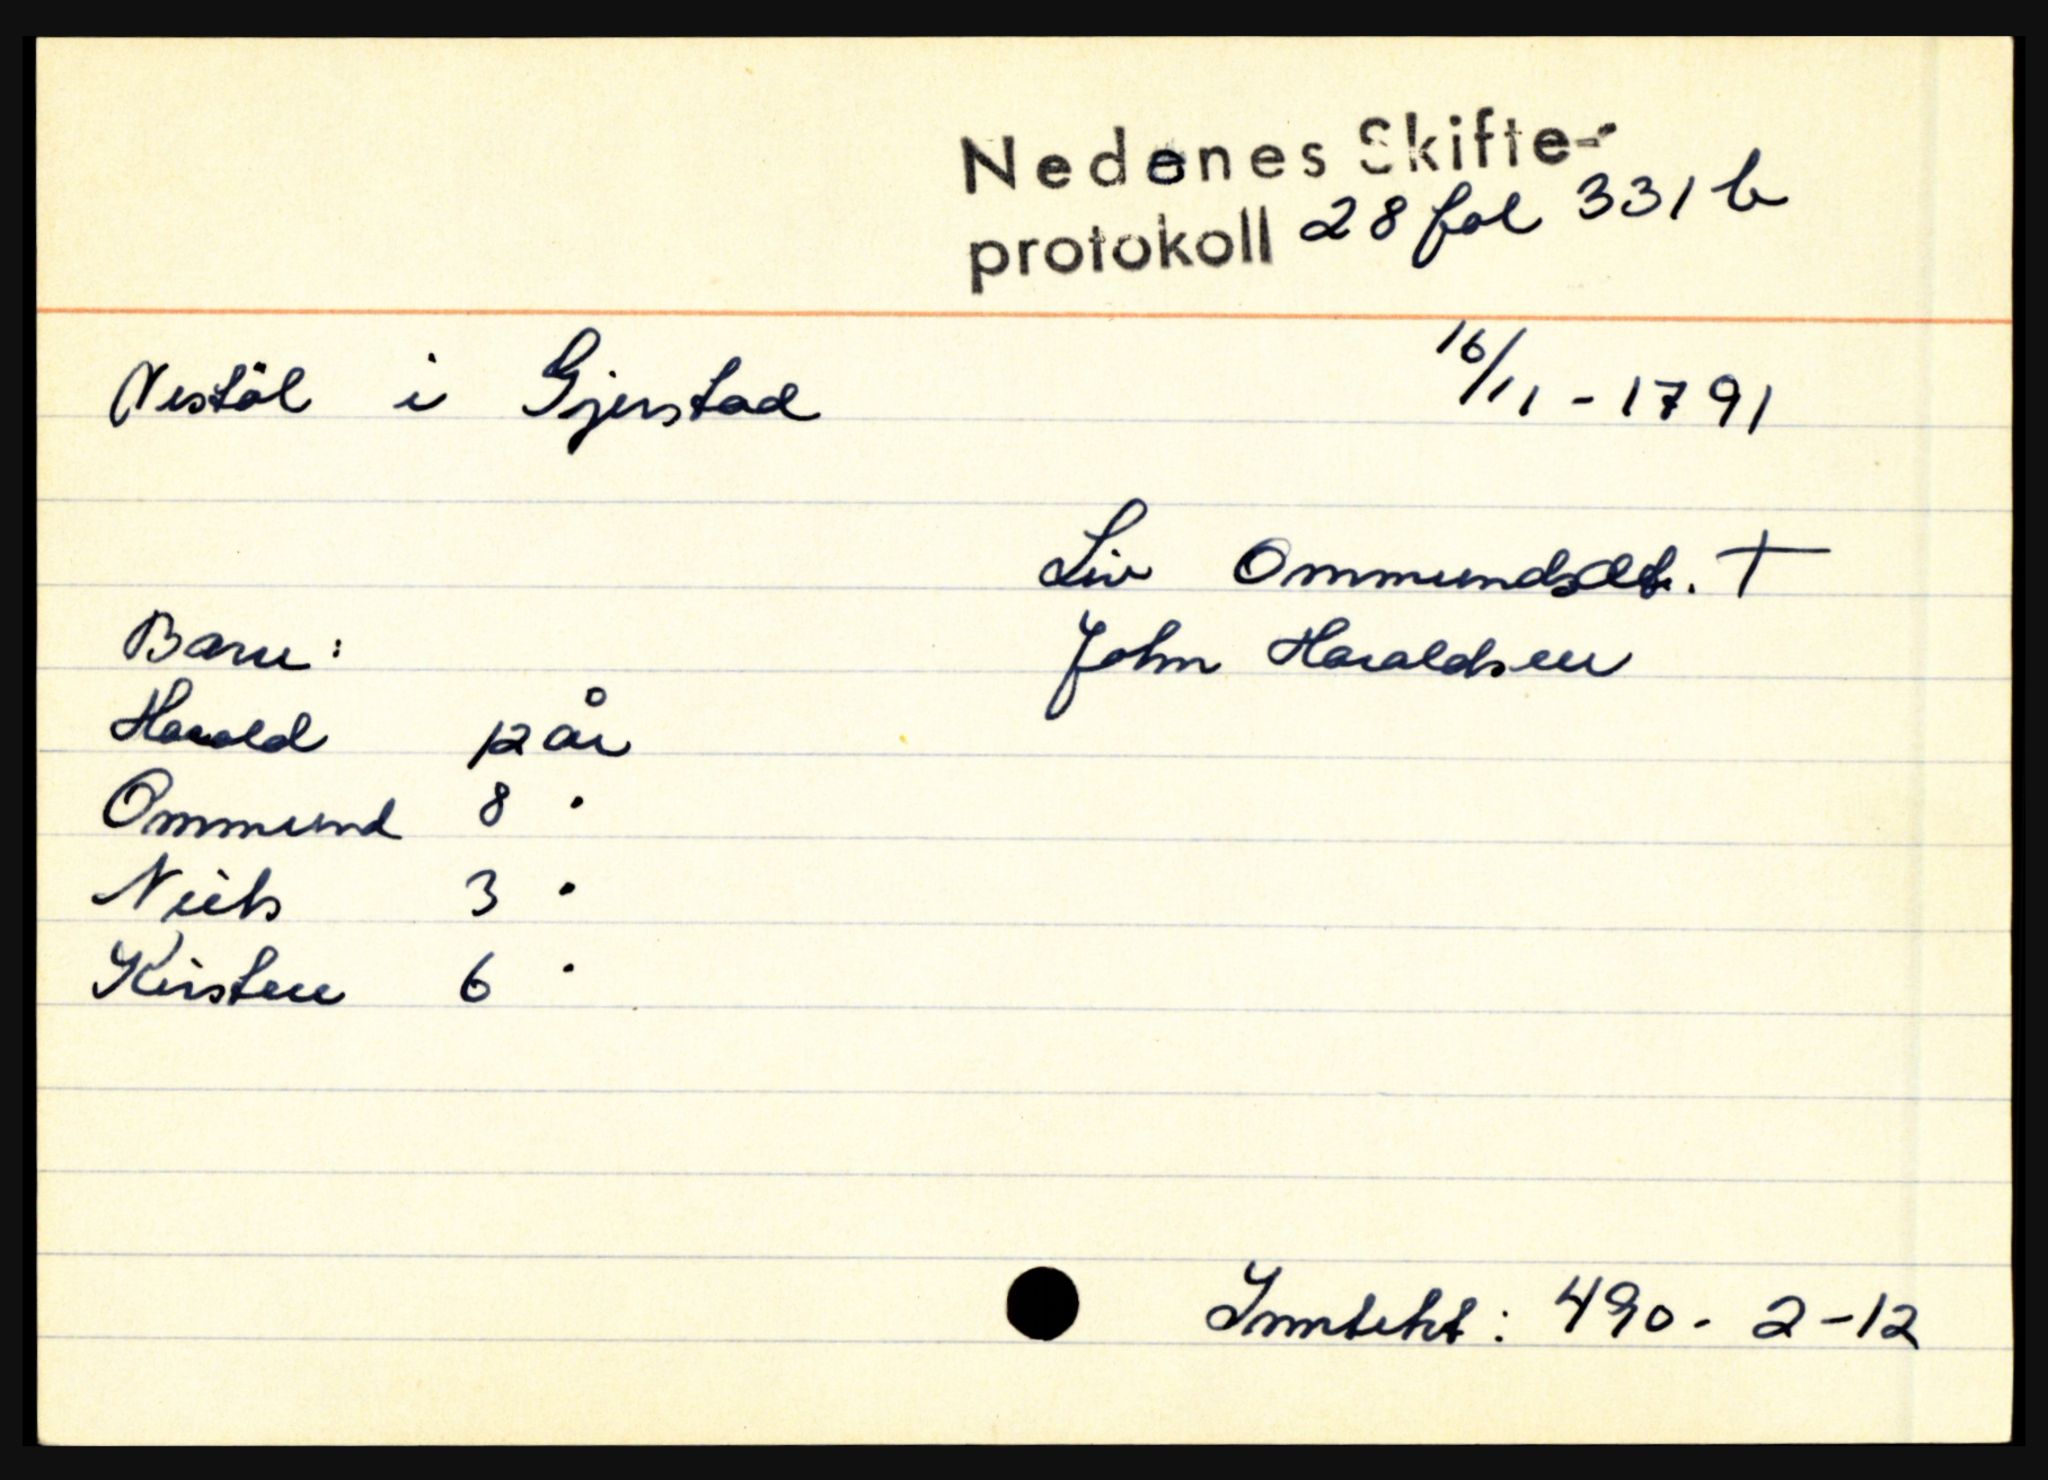 Nedenes Skifte-
protokoll 28 fol 331 b
Nestöl i Gjerstad 16/11 - 1791
Liv Ommundsdt. †
Barn: John Haraldsen
Harald 12 år
Ommund 8 "
Niels 3 "
Kirsten 6 "
Inntekt: 490 - 2 - 12